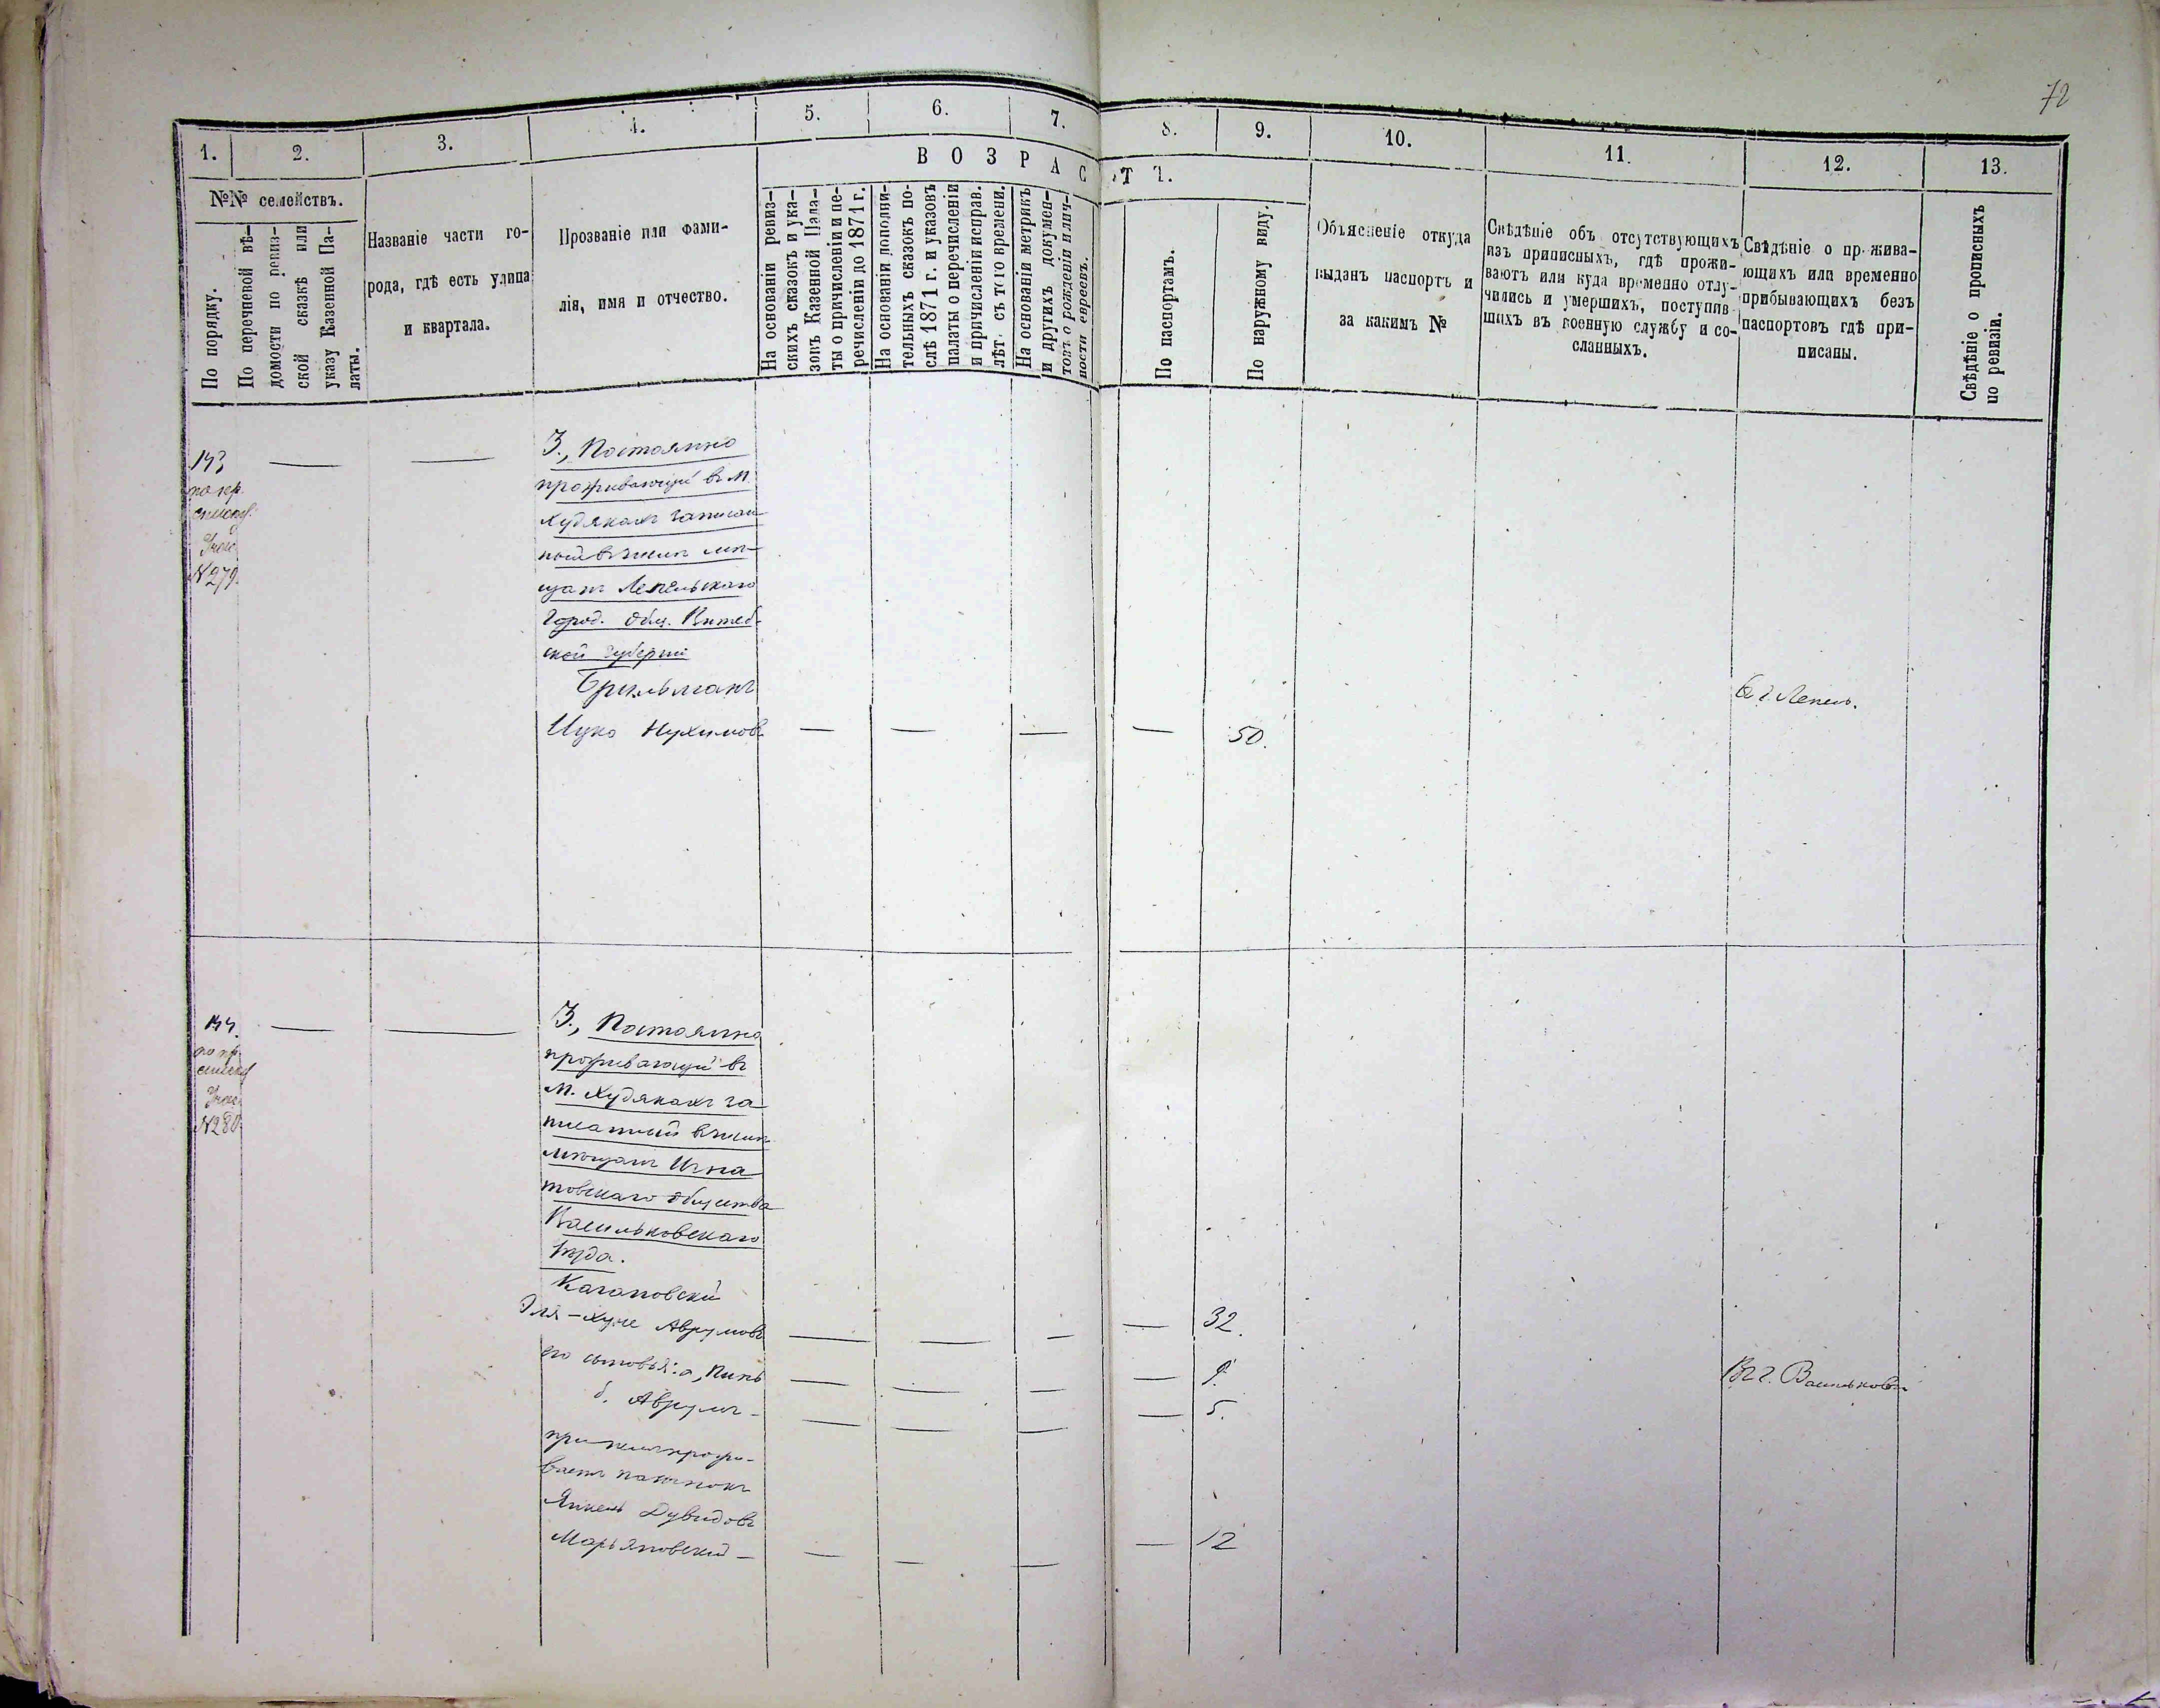 72
1.
2.
3.
4.
5.
6.
7.
8.
9.
10.
11.
12.
13.
№№ семействъ.
ВОЗРАСТЪ.
По порядку.
По перечневой вѣ-
домости по ревиз-
ской сказкѣ или
указу Казенной Па-
латы.
Названіе части го-
рода, гдѣ есть улица
и квартала.
Прозваніе или фами-
лія, имя и отчество.
На основаніи ревиз-
скихъ сказокъ и ука-
зовъ Казенной Пала-
ты о причисленіи и пе-
речисленіи до 1871 г.
На основаніи дополни-
тельныхъ сказокъ по-
слѣ 1871 г. и указовъ
палаты о перечисленіи
и причисленіи исправ.
лѣт. съ того времени.
На основаніи метрикъ
и другихъ докумен-
товъ о рожденіи и лич-
ности евреевъ.
По паспортамъ.
По наружному виду.
Объясненіе откуда
выданъ паспортъ и
за какимъ №
Свѣдѣніе объ отсутствующихъ
изъ приписныхъ, гдѣ прожи-
ваютъ или куда временно отлу-
чились и умершихъ, поступив-
шихъ въ военную службу и со-
сланныхъ.
Свѣдѣніе о прожива-
ющихъ или временно
прибывающихъ безъ
паспортовъ гдѣ при-
писаны.
Свѣдѣніе о прописныхъ
по ревизіи.
143
по пр.
№ 279.
3., Постоянно
проживающій въ м.
Худякахъ записан
мѣ-
щанъ Лепельскаго
Город. Общ. Витеб-
ской губерніи
Брильманъ
Въ г. Лепель.
Ицко Нухимовъ — — — — 50.
144.
по пр.
№ 280
3., Постоянно
проживающій въ
М. Худякахъ за
писанный
мѣщанъ Игна
товскаго общества
Васильковскаго
уѣзда.
Кагановскій
Эля-Хуне Аврумовъ — — — — 32.
его сыновья: а, Пинь — — — — 9.
Въ г. Васильковъ
б. Аврумъ — — — — 5.
при немъ прожи-
ваетъ
Янкель Дувидовъ
Марьяновскій — — — — 12